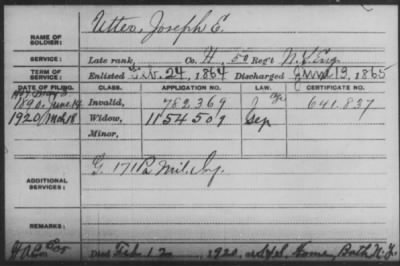 Utter, Joseph E.
NAME OF SOLDIER:
SERVICE: Late rank, Co. H, 50 Reg't N.Y. Eng.
TERM OF SERVICE: Enlisted Feb. 24, 1864 Discharged June 13, 1865
DATE OF FILING. CLASS. APPLICATION NO. LAW. CERTIFICATE NO.
1890, June 14 Invalid, 782.369 641.837
1920, Mch 18 Widow, 1154507 Sep
Minor,
ADDITIONAL SERVICES: G. 171 Pa. Mil. Inf.
REMARKS:
Died Feb. 12, 1920, at S. & S. Home, Bath N.Y.